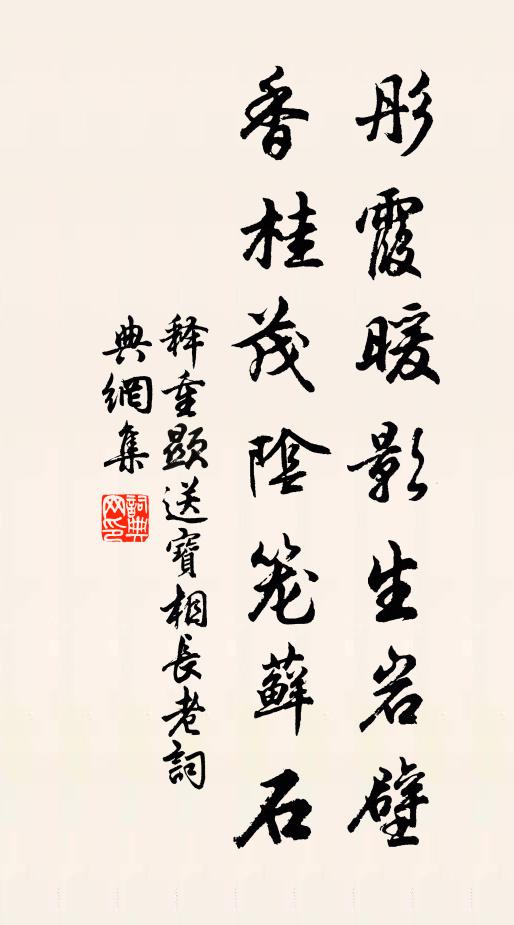 彤霞暖影生岩壁
香桂茂陰笼蘚石
释重顯送寶相長老詞
典網集
詞典网印